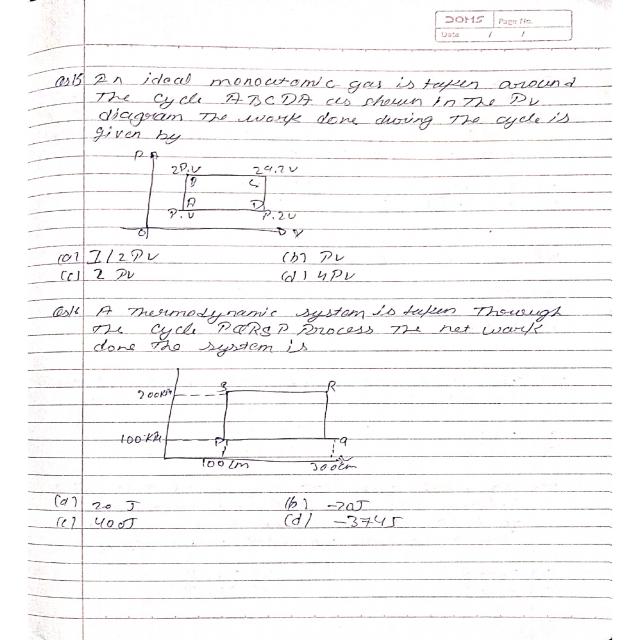 DOMS Page No.
Date / /
Qs15 An ideal monoatomic gas is taken around
The cycle ABCDA as shown in The Pv
diagram The work done during The cycle is
given by
P
2P.V 2P.2V
B C
A D
P.V P.2V
O V
(a) 1/2 PV (b) PV
(c) 2 PV (d) 4PV
Qs16 A Thermodynamic system is taken Through
The cycle PQRSP Process The net work
done The system is
200KPa S R
100KPa P Q
100 cm 300cm
(a) 20 J (b) -20J
(c) 400J (d) -374J